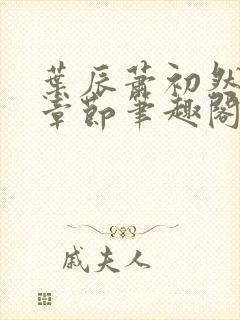 葉辰蕭初然
章節筆趣閣
戚夫人